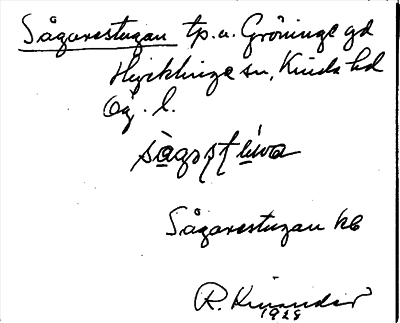 Sågarestugan tp. u. Gröninge gd
Hycklinge sn, Kinda hd
Ög. l.
Sågarestugan kb
R. Kinander
1928